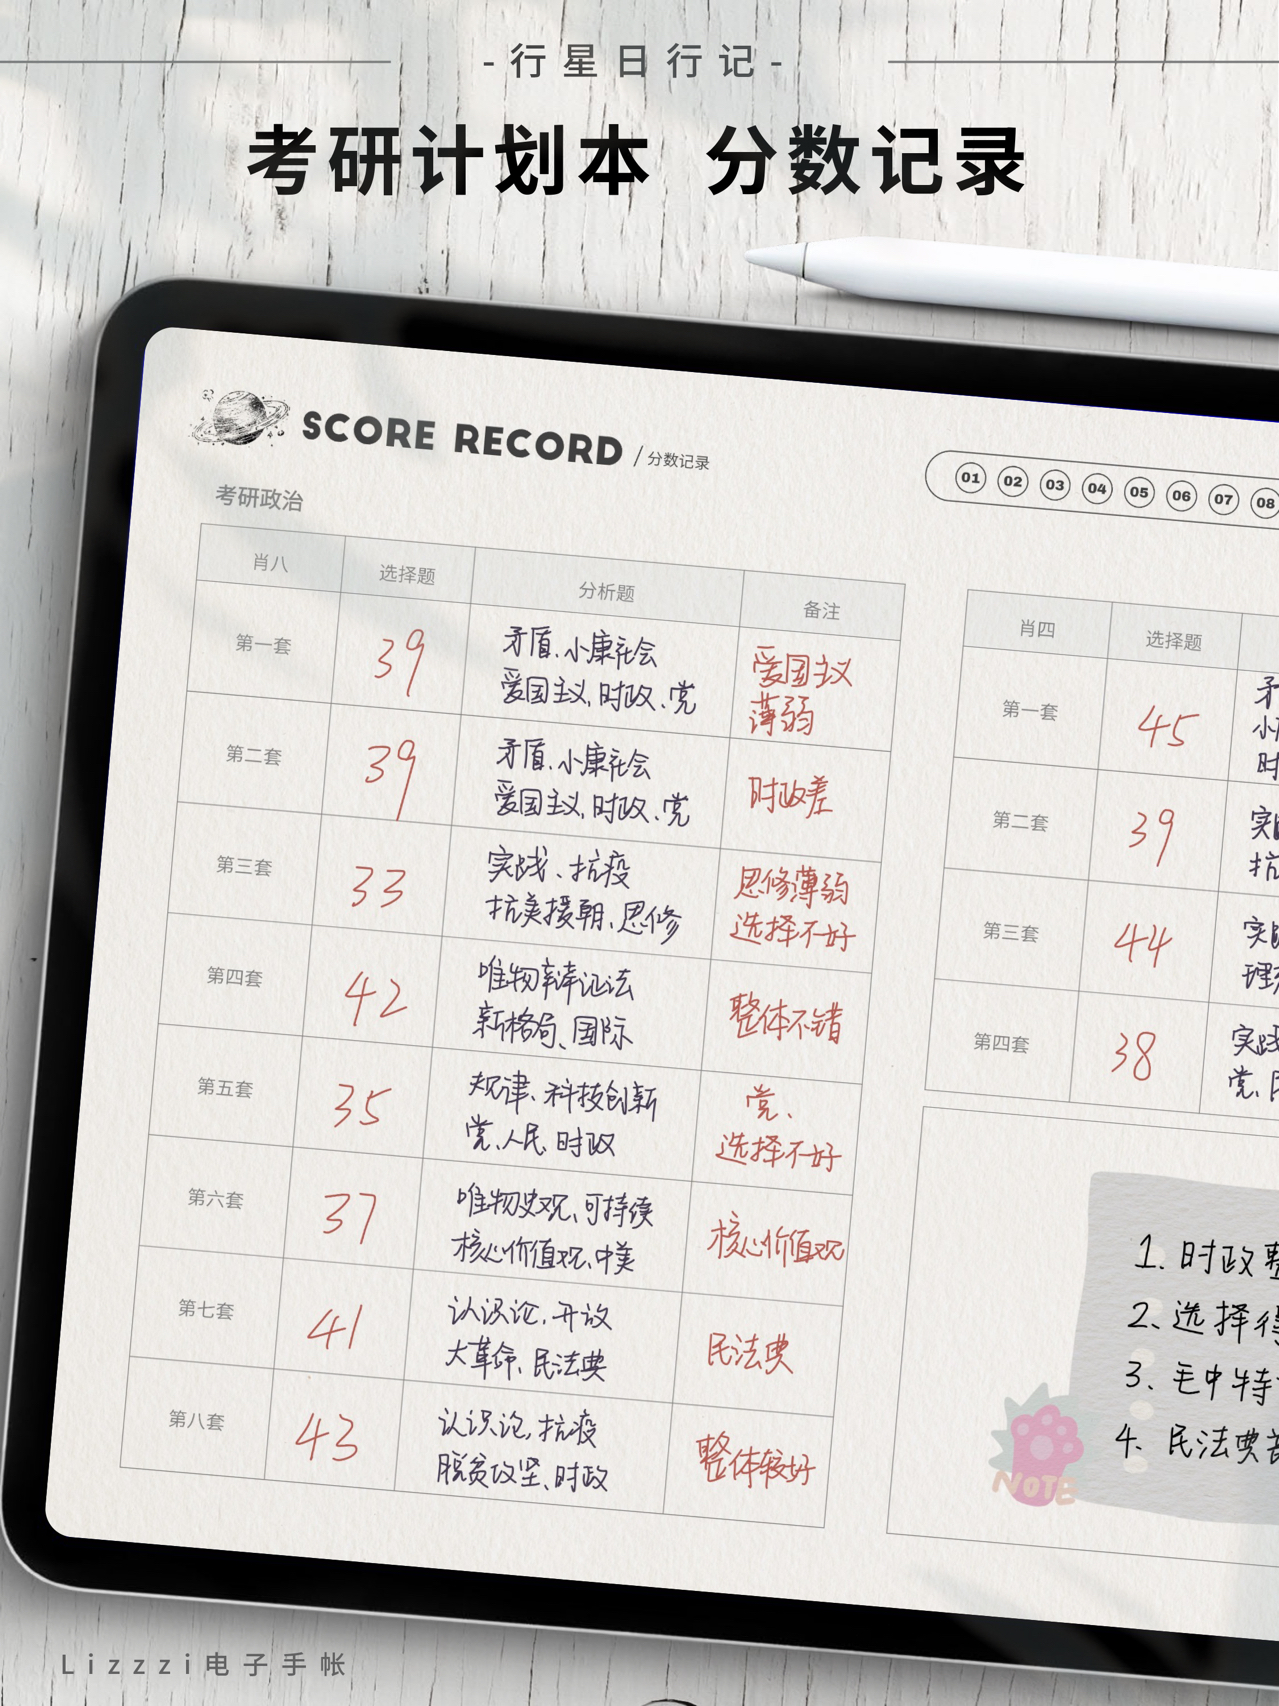 -行星日行记-
考研计划本 分数记录
SCORE RECORD /分数记录
01 02 03 04 05 06 07 08
考研政治
肖八 选择题 分析题 备注
第一套 39
矛盾、小康社会
爱国主义,时政、党
爱国主义
薄弱
第二套 39
矛盾、小康社会
爱国主义,时政、党
时政差
第三套 33
实践、抗疫
抗美援朝、思修
思修薄弱
选择不好
第四套 42
唯物辩证法
新格局、国际
整体不错
第五套 35
规律、科技创新
党、人民、时政
党、
选择不好
第六套 37
唯物史观、可持续
核心价值观、中美
核心价值观
第七套 41
认识论,开放
大革命、民法典
民法典
第八套 43
认识论,抗疫
脱贫攻坚、时政
整体较好
肖四 选择题
第一套 45
矛
小
时
第二套 39
实
抗
第三套 44
实
理
第四套 38
实践
党、
1. 时政整
2、选择得
3、毛中特
4. 民法典
NOTE
Lizzzi电子手帐